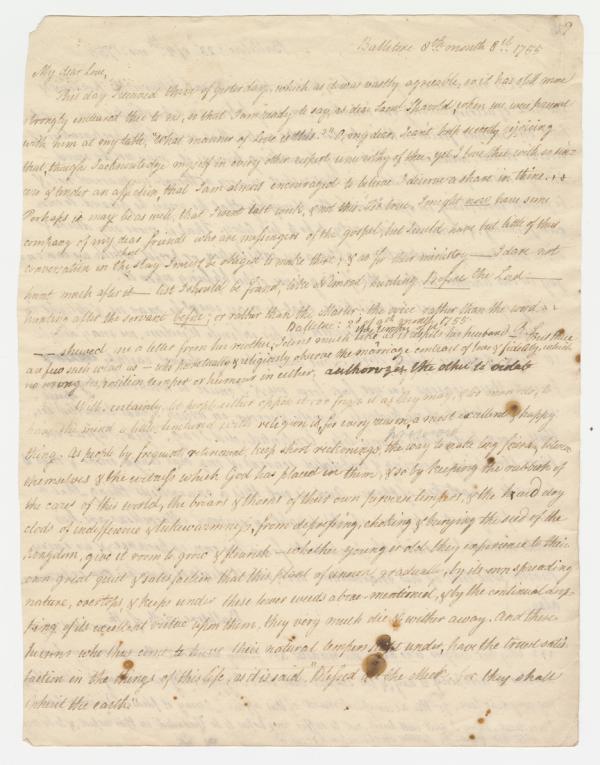 Ballitore 8th month 8th 1755
My dear Love,
This day I received thine of yesterday, which as it was vastly agreeable, so it has still more
strongly endeared thee to me, so that I am ready to say, as dear Saml. when we were present
with him at my table, "What manner of Love is this." O, my dear, I cant help secretly rejoicing
that, though I acknowledge myself in every other respect unworthy of thee, yet I love thee with so sin-
cere & tender an affection, that I am almost encouraged to believe I deserve a share in thine.
Perhaps it may be as well, that I went last week, & not this. Tis true, I might now have some
company of my dear friends who are messengers of the gospel, but I could have but little of their
conversation in the short stay I must be obliged to make there, & as for their ministry — I dare not
hunt much after it — lest I should be found, like Nimrod, hunting Before the Lord —
hunting after the servant before, or rather than the Master; the voice rather than the word
Ballitore: 2d of 9th month 1755
— shewed me a letter from her mother,
are two such wives as — who punctually & religiously observe the marriage contract of love & fidelity, which
no wrong disposition temper or humour in either, authorizes the other to violate
Well, certainly let people either oppose it or forget it as they may, & do moreover, to
have the mind a little tinctured with religion is for every reason, a most excellent & happy
thing. As people by frequent retirement, keep short reckonings, the way to make long friends, between
themselves & the witness which God has placed in them, & so by keeping the rubbish of
the cares of this world, the briars & thorns of their own perverse tempers, & the hard dry
clods of indifference & lukewarmness, from depressing, choking & burying the seed of the
Kingdom, give it room to grow & flourish — whether young or old they experience to their
own great quiet & satisfaction that this plant of renown gradually, by its own spreading
nature, overtops, & keeps under these lower weeds above-mentioned, & by the continual drop-
ping of its excellent virtue upon them, they very much die & wither away. And these
persons who thus come to have their natural tempers kept under, have the truest satis-
faction in the things of this life, as it is said "Blessed are the Meek for they shall
inherit the earth"